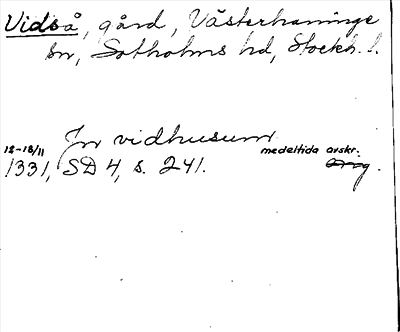 Vidså, gård, Västerhaninge
sn, Sotholms hd, Stockh. l.
In vidhusum
12-18/11 medeltida avskr.
1331, SD 4, s. 241. Orig.